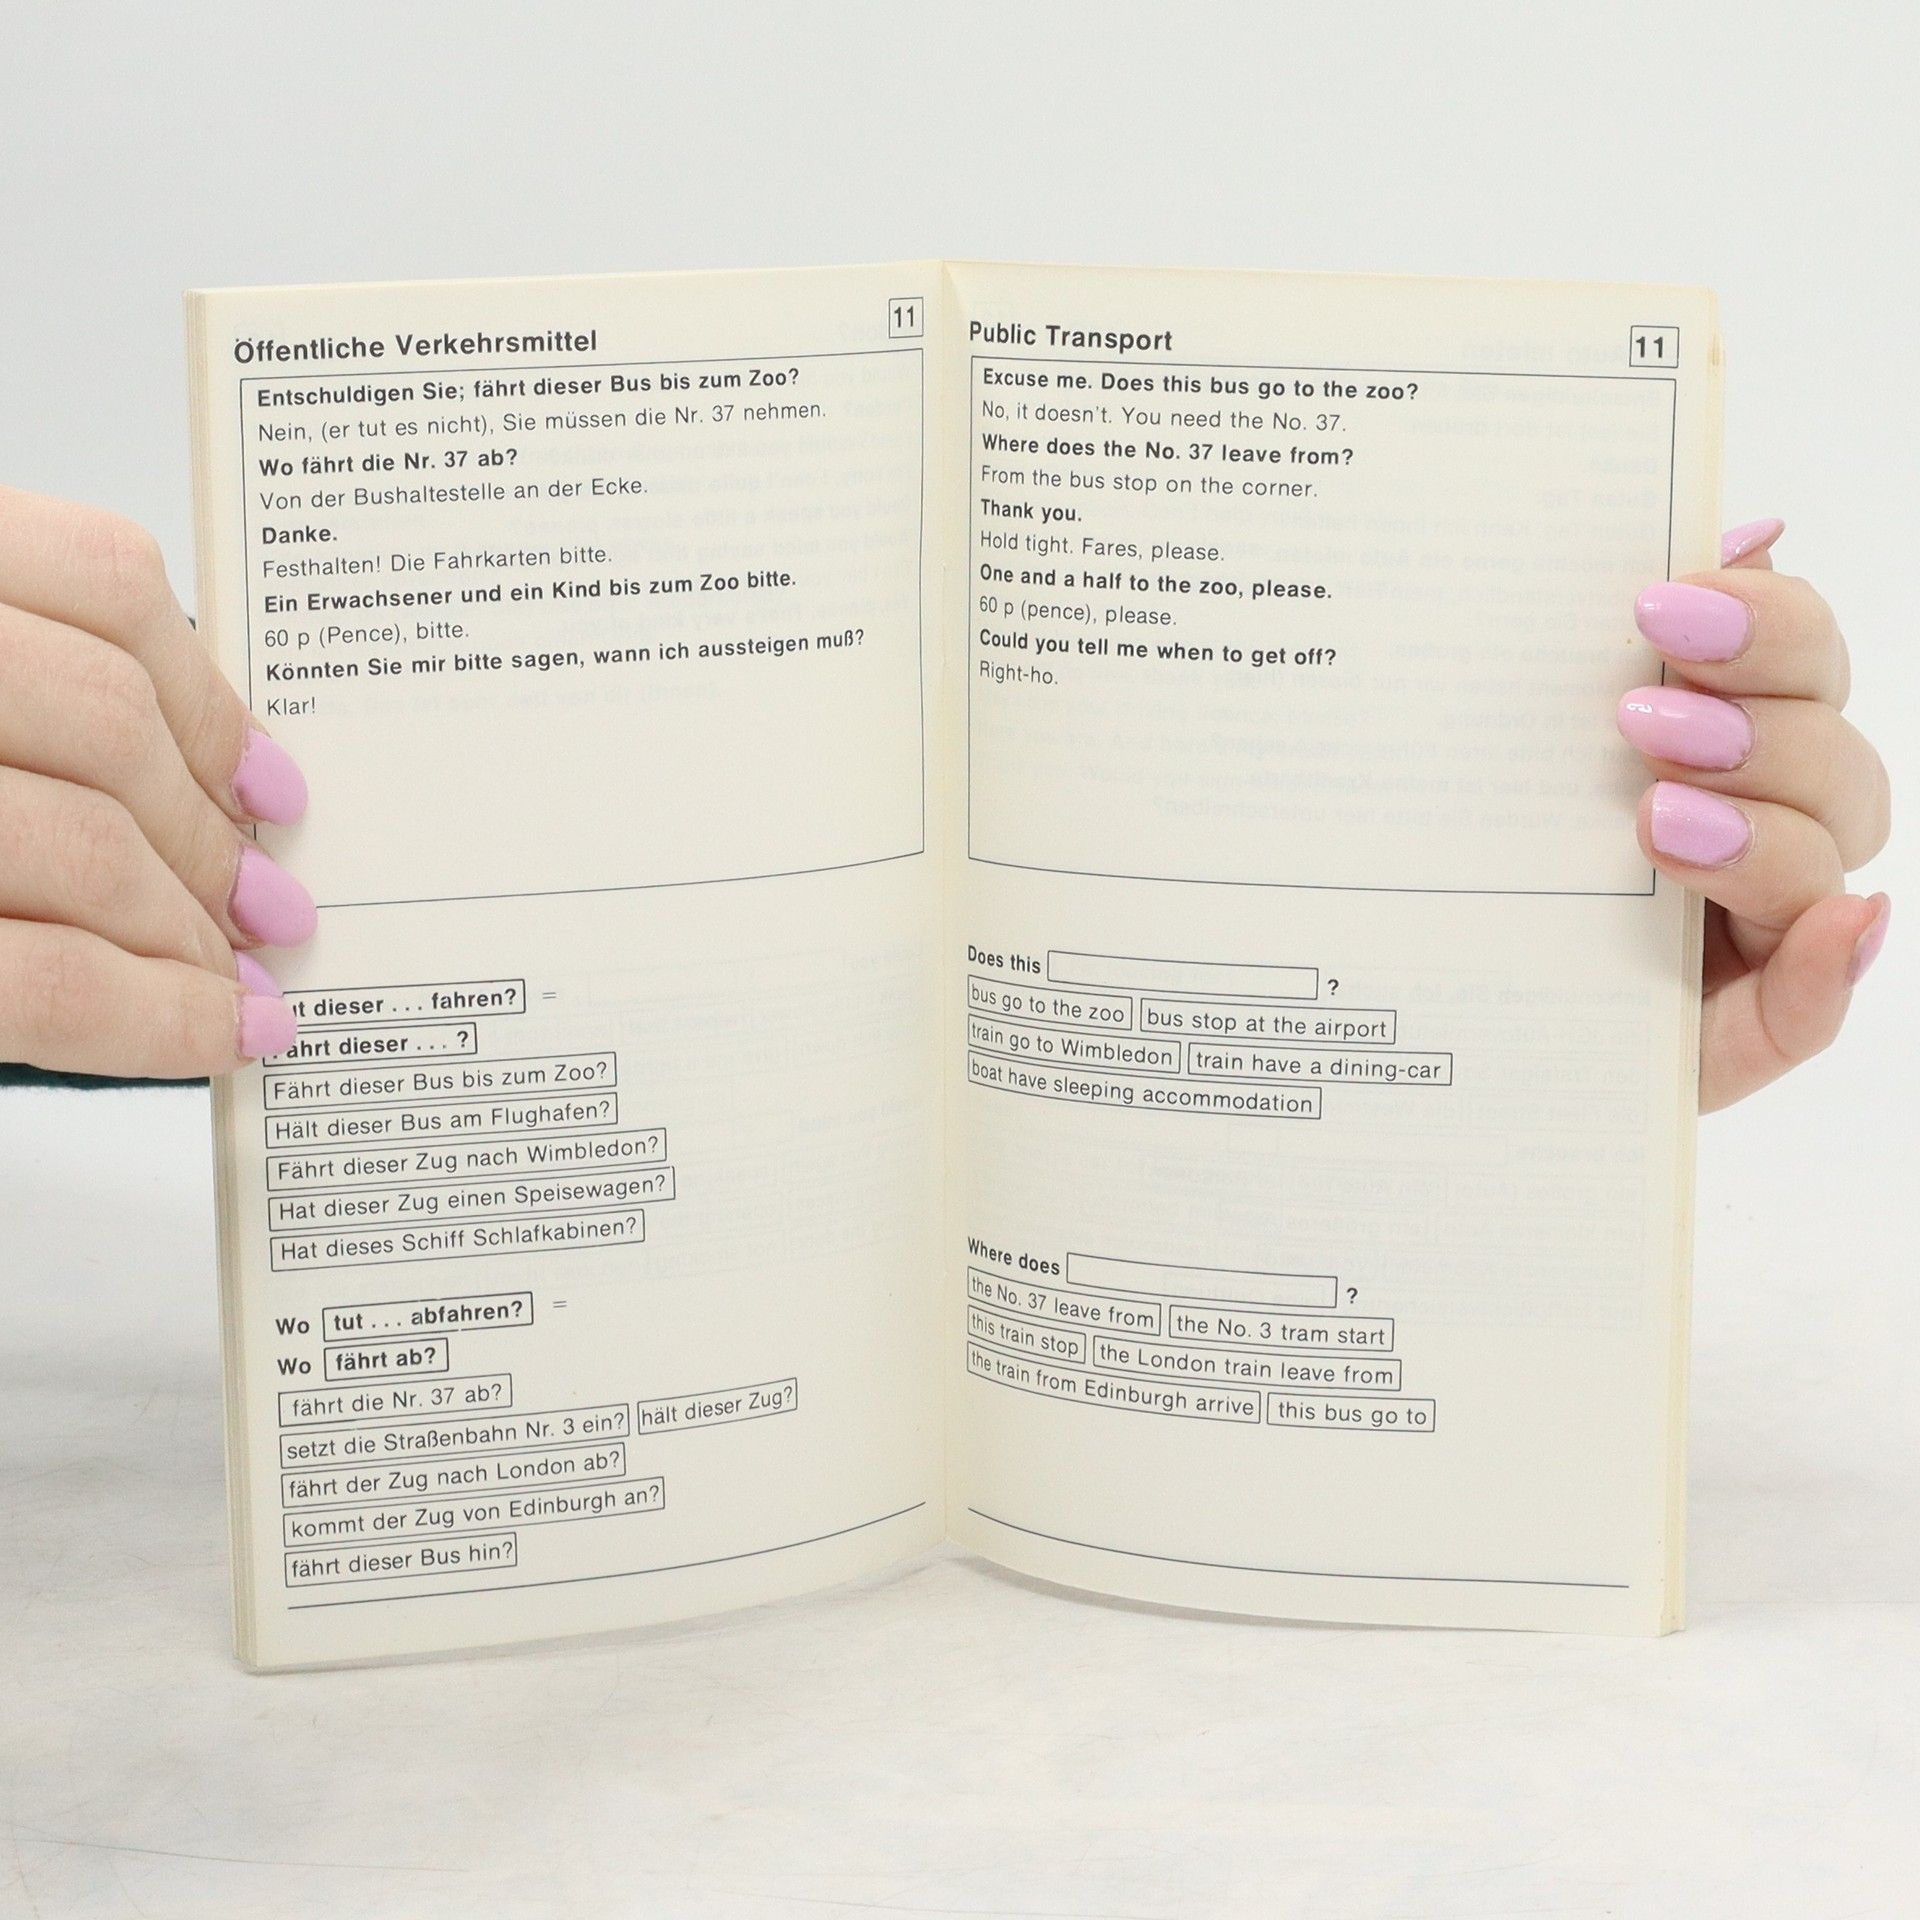 Öffentliche Verkehrsmittel
11
Entschuldigen Sie; fährt dieser Bus bis zum Zoo?
Nein, (er tut es nicht), Sie müssen die Nr. 37 nehmen.
Wo fährt die Nr. 37 ab?
Von der Bushaltestelle an der Ecke.
Danke.
Festhalten! Die Fahrkarten bitte.
Ein Erwachsener und ein Kind bis zum Zoo bitte.
60 p (Pence), bitte.
Könnten Sie mir bitte sagen, wann ich aussteigen muß?
Klar!
dieser . . . fahren? =
dieser . . . ?
Fährt dieser Bus bis zum Zoo?
Hält dieser Bus am Flughafen?
Fährt dieser Zug nach Wimbledon?
Hat dieser Zug einen Speisewagen?
Hat dieses Schiff Schlafkabinen?
Wo tut . . . abfahren? =
Wo fährt ab?
fährt die Nr. 37 ab?
setzt die Straßenbahn Nr. 3 ein? hält dieser Zug?
fährt der Zug nach London ab?
kommt der Zug von Edinburgh an?
fährt dieser Bus hin?
Public Transport
11
Excuse me. Does this bus go to the zoo?
No, it doesn't. You need the No. 37.
Where does the No. 37 leave from?
From the bus stop on the corner.
Thank you.
Hold tight. Fares, please.
One and a half to the zoo, please.
60 p (pence), please.
Could you tell me when to get off?
Right-ho.
Does this ?
bus go to the zoo bus stop at the airport
train go to Wimbledon train have a dining-car
boat have sleeping accommodation
Where does ?
the No. 37 leave from the No. 3 tram start
this train stop the London train leave from
the train from Edinburgh arrive this bus go to